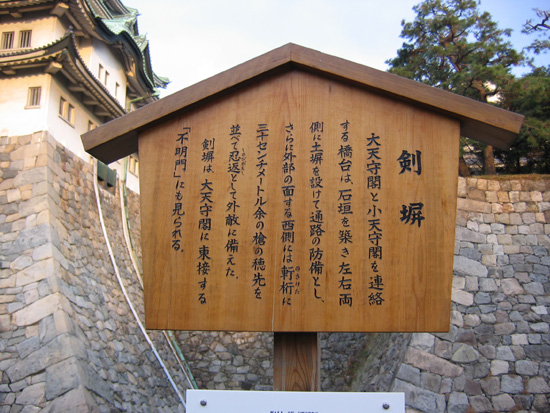 剣塀
大天守閣と小天守閣を連絡
する橋台は、石垣を築き左右両
側に土塀を設けて通路の防備とし、
さらに外部の面する西側には軒桁に
三十センチメートル余の槍の穂先を
並べて忍返として外敵に備えた。
剣塀は、大天守閣に東接する
「不明門」にも見られる。